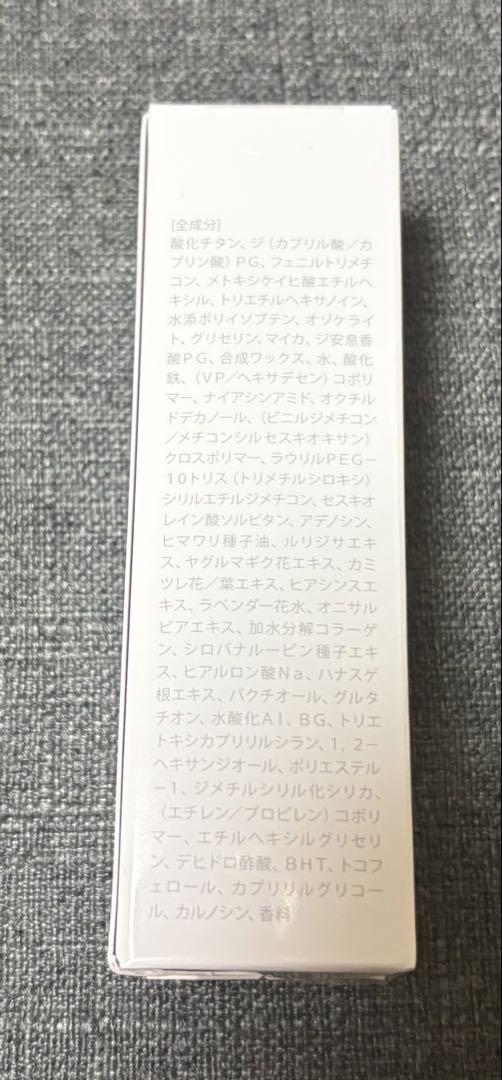 [全成分]
酸化チタン、ジ（カプリル酸／カ
プリン酸）ＰＧ、フェニルトリメチ
コン、メトキシケイヒ酸エチルヘ
キシル、トリエチルヘキサノイン、
水添ポリイソブテン、オゾケライ
ト、グリセリン、マイカ、ジ安息香
酸ＰＧ、合成ワックス、水、酸化
鉄、（ＶＰ／ヘキサデセン）コポリ
マー、ナイアシンアミド、オクチル
ドデカノール、（ビニルジメチコン
／メチコンシルセスキオキサン）
クロスポリマー、ラウリルＰＥＧ－
１０トリス（トリメチルシロキシ）
シリルエチルジメチコン、セスキオ
レイン酸ソルビタン、アデノシン、
ヒマワリ種子油、ルリジサエキ
ス、ヤグルマギク花エキス、カミ
ツレ花／葉エキス、ヒアシンスエ
キス、ラベンダー花水、オニサル
ビアエキス、加水分解コラーゲ
ン、シロバナルーピン種子エキ
ス、ヒアルロン酸Ｎａ、ハナスゲ
根エキス、バクチオール、グルタ
チオン、水酸化ＡＩ、ＢＧ、トリエ
トキシカプリリルシラン、１，２－
ヘキサンジオール、ポリエステル
－１、ジメチルシリル化シリカ、
（エチレン／プロピレン）コポリ
マー、エチルヘキシルグリセリ
ン、デヒドロ酢酸、ＢＨＴ、トコフ
ェロール、カプリリルグリコー
ル、カルノシン、香料